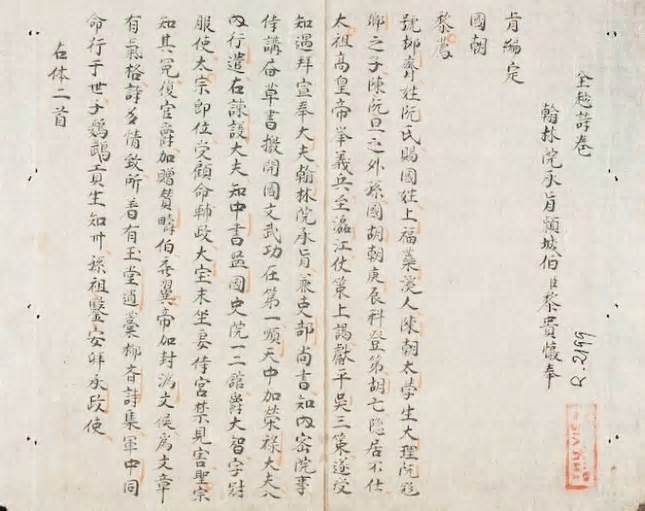 全越詩卷
翰林院承旨頴城伯臣黎貴惇奉
旨編定
國朝
黎廌
號抑齊姓阮氏賜國姓上福蘂溪人陳朝太學生大理阮飛
卿之子陳元旦之外孫國胡朝庚辰科登第胡亡隐居不仕
太祖高皇帝举義兵至瀘江仗策上謁獻平吳三策遂受
知遇拜宣奉大夫翰林院承旨兼吏部尚書知內密院事
侍講草書檄開國文武功在第一順天中加榮祿大夫入
內行遣右諫議大夫知中書監國史院一二館爵大智字尉
服使太宗即位受顧命輔政大宝末坐妾侍宮禁見害聖宗
知其冤復官爵加贈賛疇伯襄翼帝加封济文侯為文章
有氣格詩多情致所著有玉堂遺藁抑齊詩集軍中詞
命行于世子鸚鵡貢生知州孫祖鑒安邦承政使
右体二首
R.2199